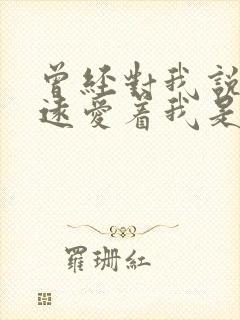 曾经對我説
遠愛着我是
羅珊紅